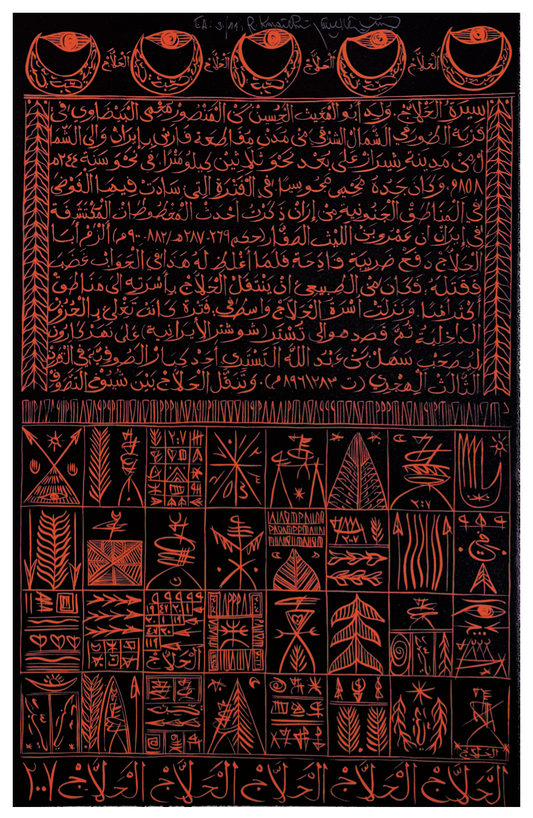 EA. 3/11. R. Koraïchi
الحلاج الحلاج الحلاج الحلاج
سيرة الحلاج. ولد أبو المغيث الحسين بن المنصور محمي البيضاوي في
قرية الطور في الشمال الشرقي من مدن مقاطعة فارس بإيران والى الشما
ل من مدينة شيراز على بعد نحو ثلاثين كيلو مترا في نحو سنة ٢٤٤هـ
٨٥٨م. وكان جده محمي مجوسيا في الفترة التي سادت فيها الفوضى
في المناطق الجنوبية من إيران ذكرت أحدث المخطوطات المكتشفة
في إيران أن عمرو بن الليث الصفار (حكم ٢٦٩-٢٨٧هـ/٨٨٢-٩٠٠م) ألزم أبا
الحلاج دفع ضريبة فادحة فلما أغلظ له هذا في الجواب غضب
فقتله. فكان من الطبيعي أن ينتقل الحلاج بأسرته إلى مناطق
أكثر أمنا. ونزلت أسرة الحلاج واسط في فترة كانت تغلي بالحروب
الداخلية ثم قصد هو إلى تستر (شوشتر الإيرانية) على نهر كارون
ليصحب سهل بن عبد الله التستري أحد كبار الصوفية في القرن
الثالث الهجري (ت ٢٨٣/٨٩٦م). وتنقل الحلاج بين شيوخ التصوف
الحلاج
الحلاج
الحلاج الحلاج الحلاج الحلاج الحلاج ٢٠٠٧